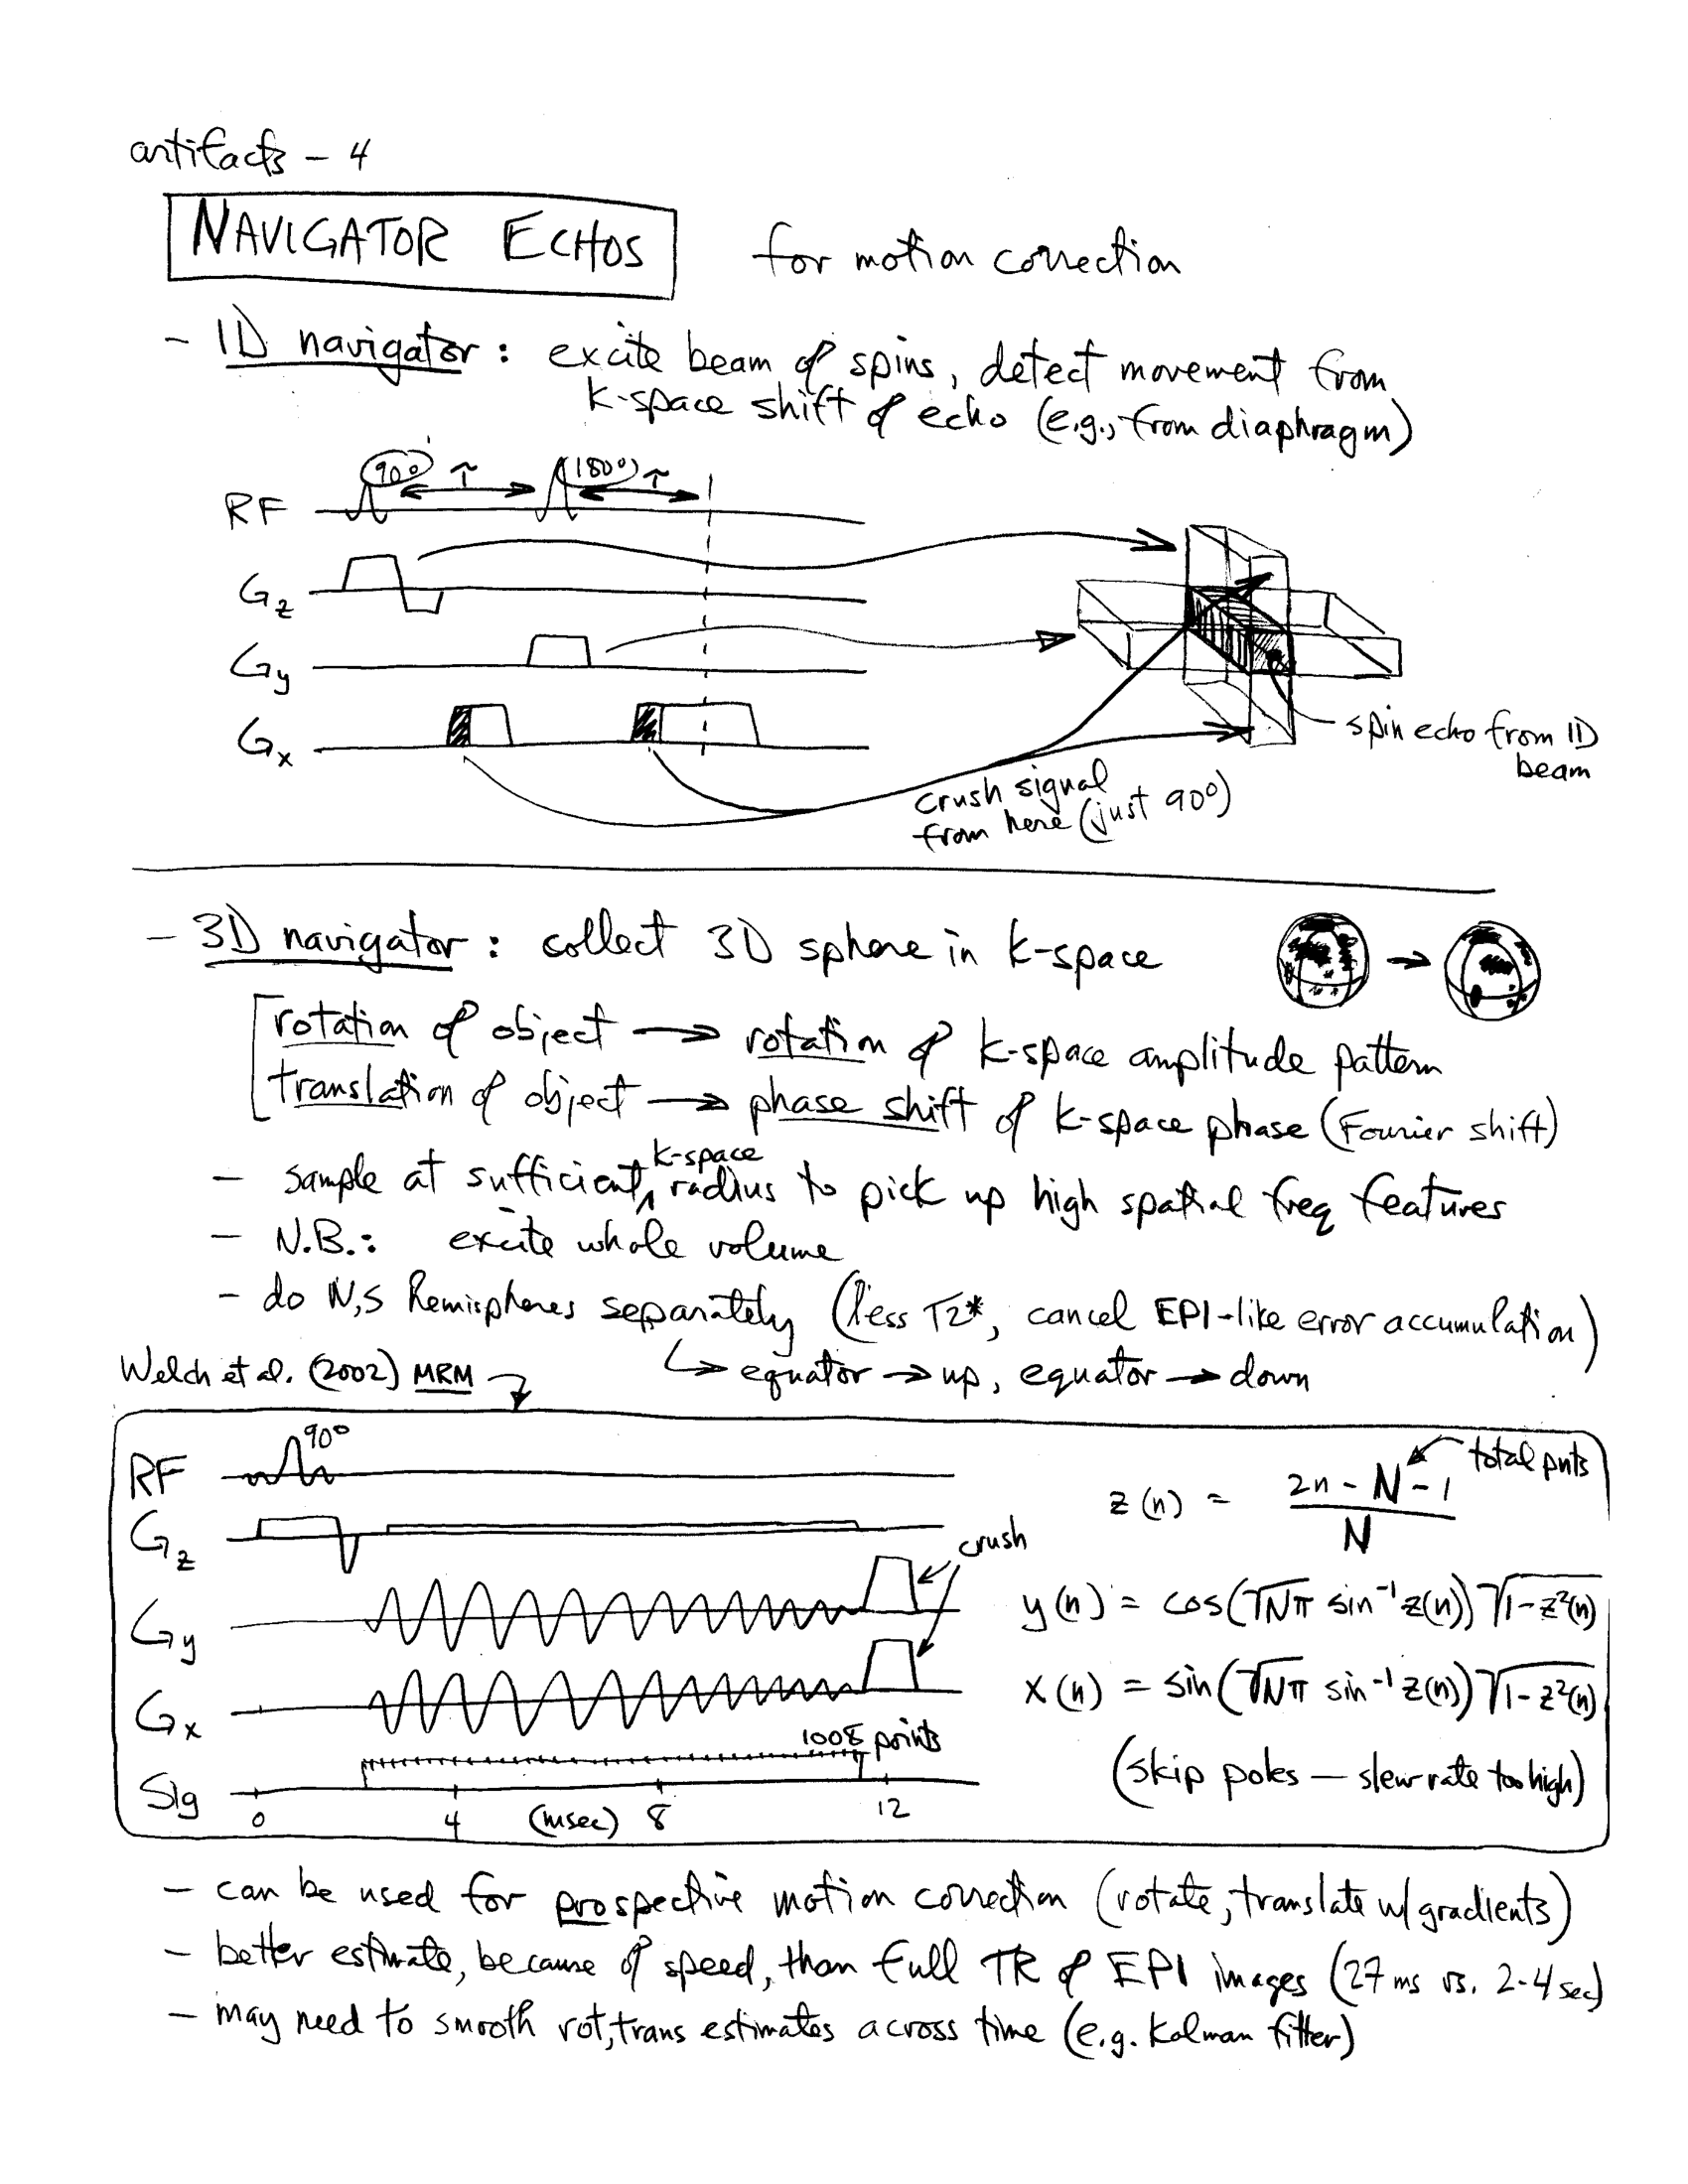 artifacts - 4
NAVIGATOR ECHOS for motion correction
- 1D navigator: excite beam of spins, detect movement from
k-space shift of echo (e.g., from diaphragm)
RF 90° τ 180° τ
Gz
Gy
Gx
spin echo from 1D
beam
crush signal
from here (just 90°)
- 3D navigator: collect 3D sphere in k-space
rotation of object → rotation of k-space amplitude pattern
translation of object → phase shift of k-space phase (Fourier shift)
- sample at sufficient k-space radius to pick up high spatial freq features
- N.B.: excite whole volume
- do N,S hemispheres separately (less T2*, cancel EPI-like error accumulation)
↳ equator → up, equator → down
Welch et al. (2002) MRM
RF 90°
Gz
crush
Gy
Gx
1008 points
Sig
0 4 (msec) 8 12
z(n) = (2n - N - 1)/N total pnts
y(n) = cos(√Nπ sin⁻¹ z(n)) √1-z²(n)
x(n) = sin(√Nπ sin⁻¹ z(n)) √1-z²(n)
(skip poles — slew rate too high)
- can be used for prospective motion correction (rotate, translate w/ gradients)
- better estimate, because of speed, than full TR of EPI images (27 ms vs. 2-4 sec)
- may need to smooth rot, trans estimates across time (e.g. Kalman filter)